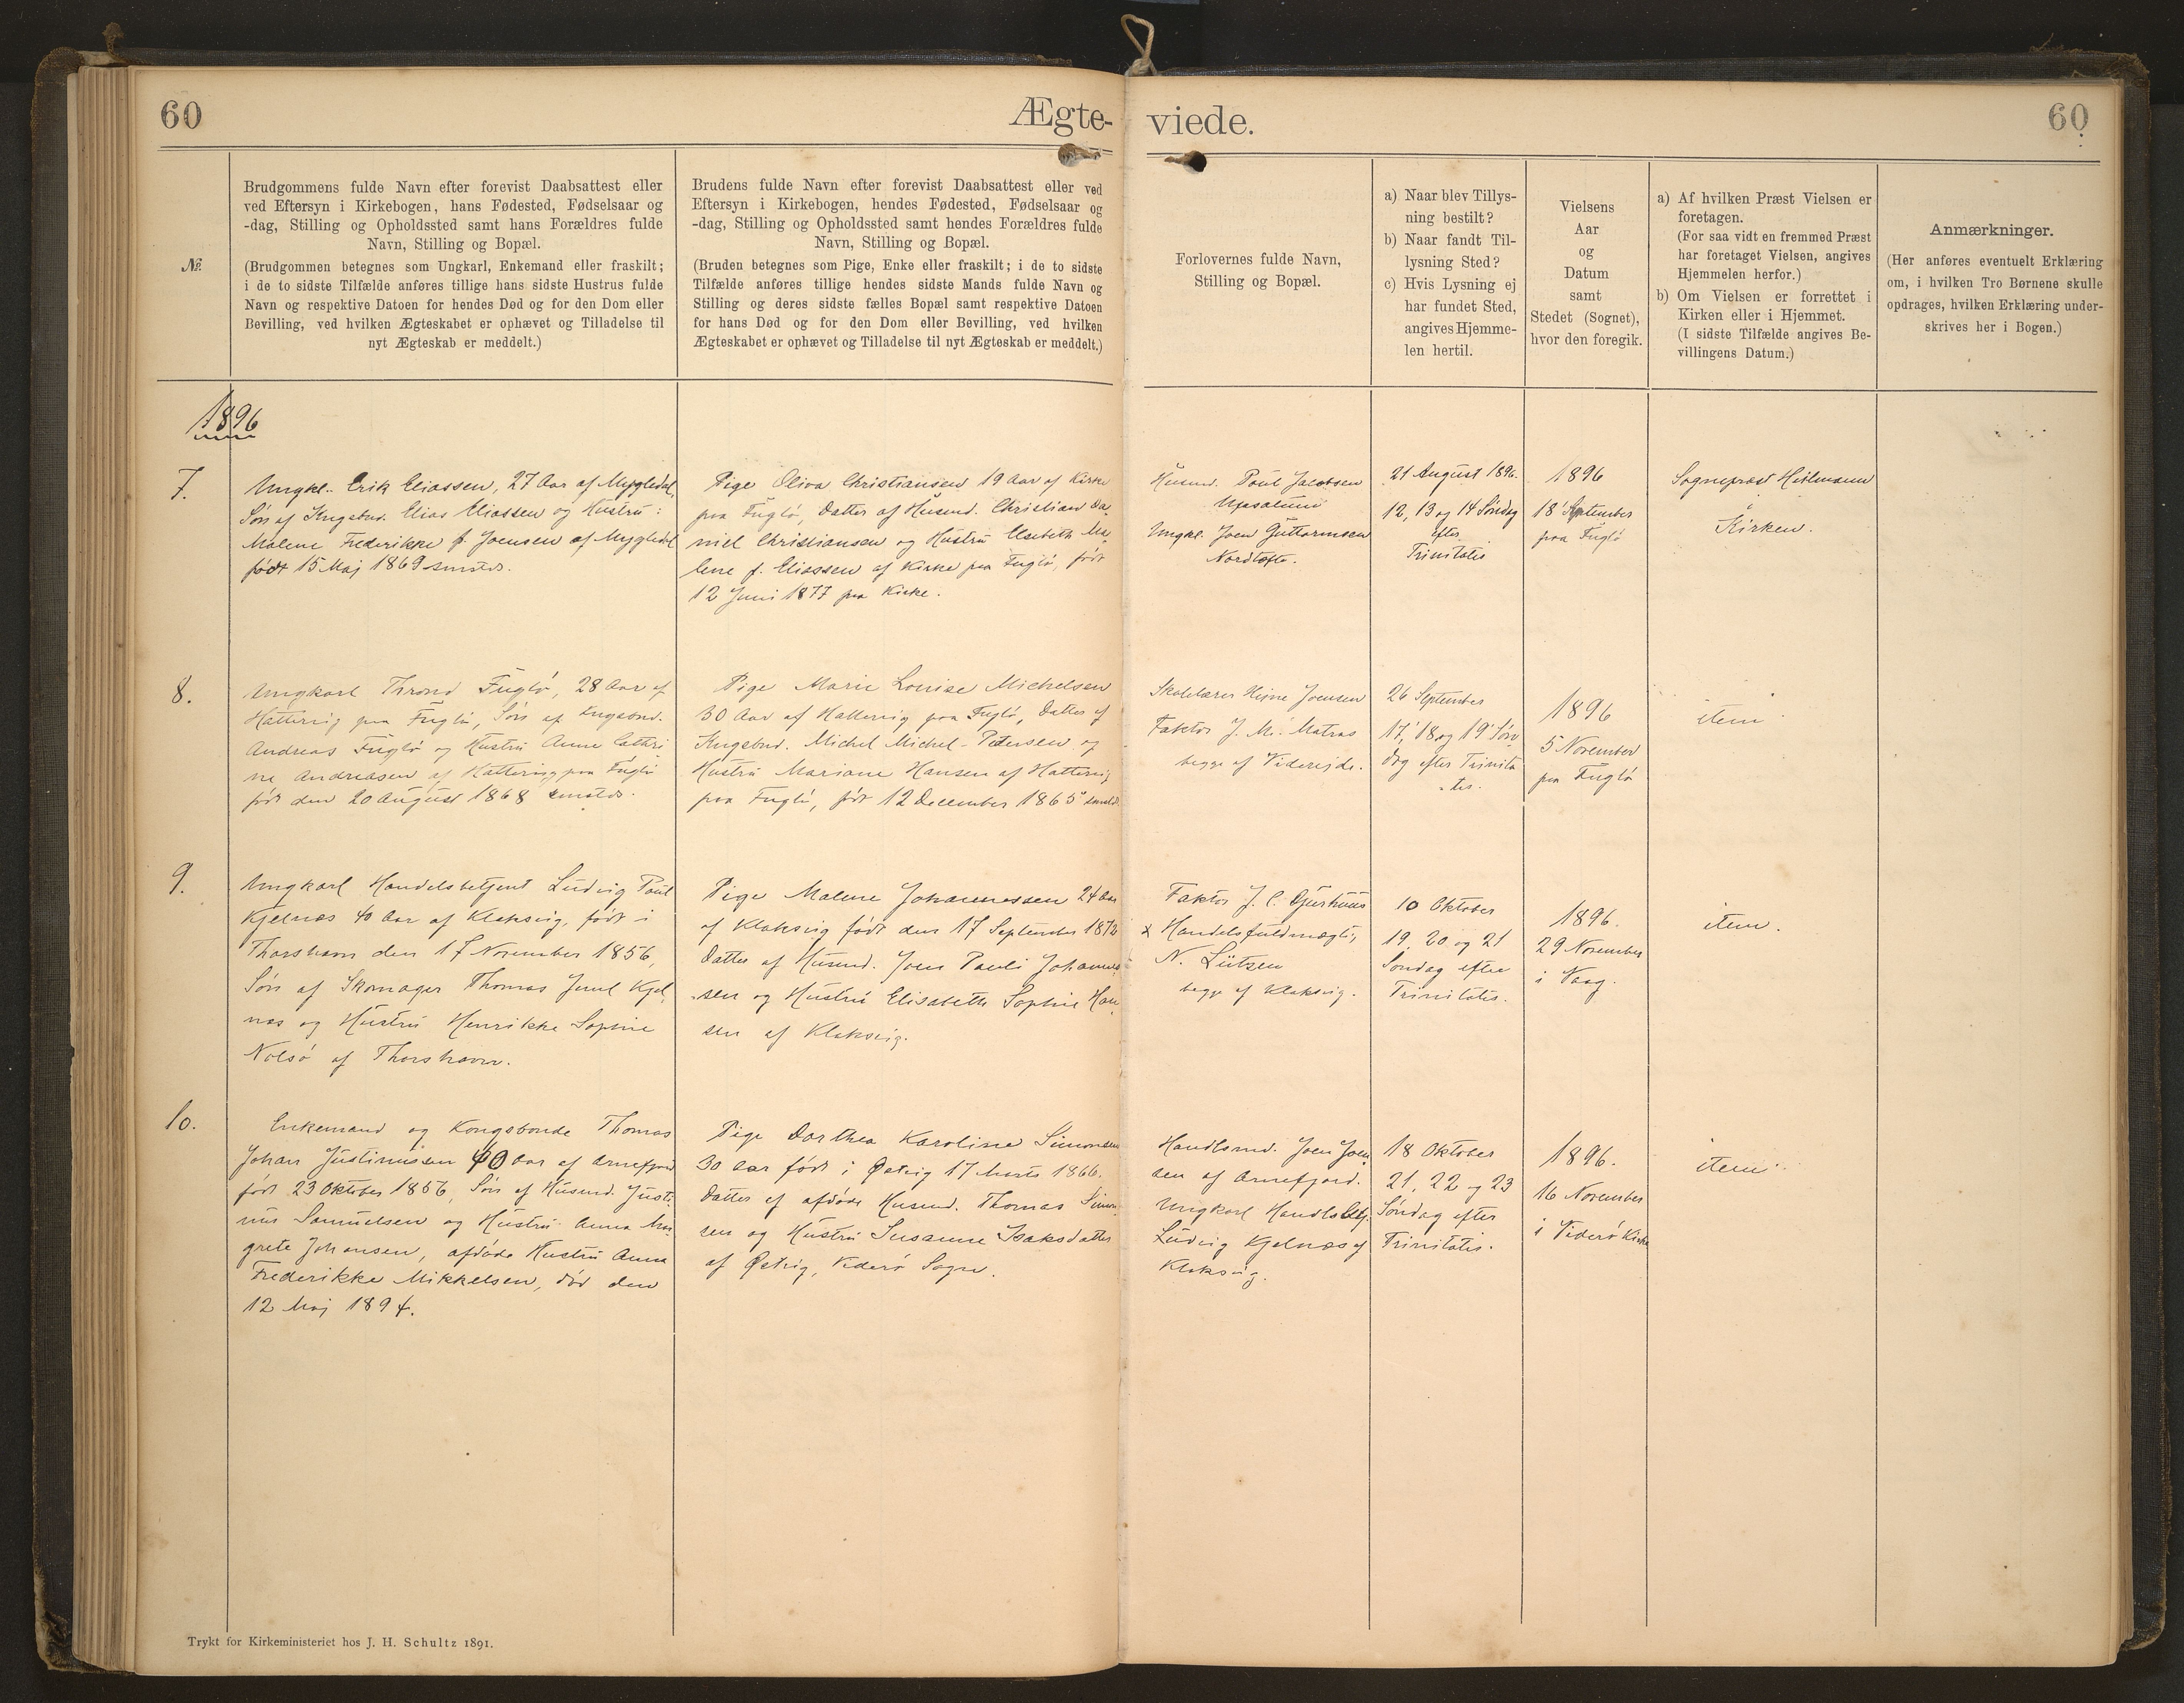 60
Ægte-
viede.
60
№
Brudgommens fulde Navn efter forevist Daabsattest eller
ved Eftersyn i Kirkebogen, hans Fødested, Fødselsaar og
-dag, Stilling og Opholdssted samt hans Forældres fulde
Navn, Stilling og Bopæl.
(Brudgommen betegnes som Ungkarl, Enkemand eller fraskilt;
i de to sidste Tilfælde anføres tillige hans sidste Hustrus fulde
Navn og respektive Datoen for hendes Død og for den Dom eller
Bevilling, ved hvilken Ægteskabet er ophævet og Tilladelse til
nyt Ægteskab er meddelt.)
Brudens fulde Navn efter forevist Daabsattest eller ved
Eftersyn i Kirkebogen, hendes Fødested, Fødselsaar og
-dag, Stilling og Opholdssted samt hendes Forældres fulde
Navn, Stilling og Bopæl.
(Bruden betegnes som Pige, Enke eller fraskilt; i de to sidste
Tilfælde anføres tillige hendes sidste Mands fulde Navn og
Stilling og deres sidste fælles Bopæl samt respektive Datoen
for hans Død og for den Dom eller Bevilling, ved hvilken
Ægteskabet er ophævet og Tilladelse til nyt Ægteskab er meddelt.)
Forlovernes fulde Navn,
Stilling og Bopæl.
a) Naar blev Tillys-
ning bestilt?
b) Naar fandt Til-
lysning Sted?
c) Hvis Lysning ej
har fundet Sted,
angives Hjemme-
len hertil.
Vielsens
Aar
og
Datum
samt
Stedet (Sognet),
hvor den foregik.
a) Af hvilken Præst Vielsen er
foretagen.
(For saa vidt en fremmed Præst
har foretaget Vielsen, angives
Hjemmelen herfor.)
b) Om Vielsen er forrettet i
Kirken eller i Hjemmet.
(I sidste Tilfælde angives Be-
villingens Datum.)
Anmærkninger.
(Her anføres eventuelt Erklæring
om, i hvilken Tro Børnene skulle
opdrages, hvilken Erklæring under-
skrives her i Bogen.)
1896
7.
Ungkl. Erik Eliassen, 27 Aar af Mygledal,
Søn af Kngsbnd. Elias Eliassen og Hustru:
Malene Frederikke f. Joensen af Mygledal
født 15 Maj 1869 smstds.
Pige Oliva Christiansen 19 Aar af Kirke
paa Fuglö, Datter af Husmd. Christian Da-
niel Christiansen og Hustru Elsebeth Ma-
lene f. Eliassen af Kirke paa Fuglö, født
12 Juni 1877 paa Kirke.
Husmd. Poul Jacobsen
Ungkl. Joen Guttormsen
Nordtofte.
21 August 1896.
12, 13 og 14 Söndag
efter
Trinitatis
1896
18 September
paa Fuglö
Sognepræst Heilmann
Kirken.
8.
Ungkarl Thrond Fuglö, 28 Aar af
Hattervig paa Fuglö, Søn af Kngsbnd.
Andreas Fuglö og Hustru Anne Cathri-
ne Andreasen af Hattervig paa Fuglö
født den 20 August 1868 smstds.
Pige Marie Louise Michelsen
30 Aar af Hattervig paa Fuglö, Datter af
Kngsbnd. Michel Michel-Petersen og
Hustru Mariane Hansen af Hattervig
paa Fuglö, født 12 December 1865 smstds
Skolelærer Heine Joensen
Faktor J. M. Matras
begge af Viderejde.
26 September
17, 18 og 19 Søn-
dag efter Trinita-
tis.
1896
5 November
paa Fuglö
item
9.
Ungkarl Handelsbetjent Ludvig Poul
Kjelnæs 40 Aar af Klaksvig, født i
Thorshavn den 17 November 1856,
Søn af Skomager Thomas Juul Kjel-
næs og Hustru Henrikke Sophie
Nolsö af Thorshavn.
Pige Malene Johannessen 24 Aar
af Klaksvig født den 17 September 1872
Datter af Husmd. Joen Pauli Johannes-
sen og Hustru Elisabeth Sophie Han-
sen af Klaksvig.
Faktor J. C. Djurhuus
& Handelsfuldmægtig
N. Lützen
begge af Klaksvig.
10 Oktober
19, 20 og 21
Söndag efter
Trinitatis.
1896.
29 November
i Vaag.
item.
10.
Enkemand og Kongsbonde Thomas
Johan Justinussen 40 Aar af Arnefjord
født 23 Oktober 1856, Søn af Husmd. Justi-
nus Samuelsen og Hustru Anna Mar-
grete Johansen, afdøde Hustru Anna
Frederikke Mikkelsen, død den
12 Maj 1894.
Pige Dorthea Karoline Simonsen
30 Aar født i Qvivig 17 Marts 1866.
Datter af afdøde Husmd. Thomas Simon-
sen og Hustru Susanne Isaksdatter
af Viderö Sogn.
Handlsmd. Joen Joen-
sen af Arnefjord.
Ungkarl Handlsbtj.
Ludvig Kjelnæs af
Klaksvig.
18 Oktober
21, 22 og 23
Söndag efter
Trinitatis.
1896.
16 November
i Viderö Kirke
item
Trykt for Kirkeministeriet hos J. H. Schultz 1891.